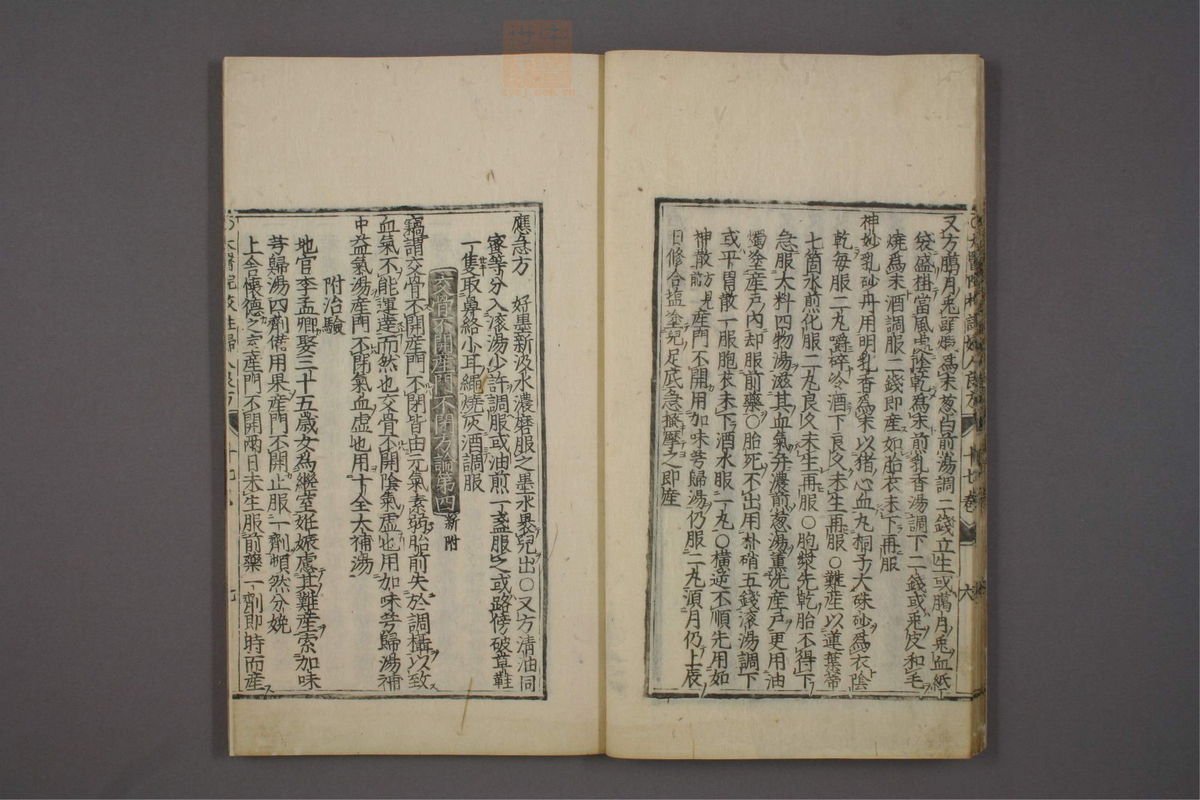 又方臘月兎頭腦爲末葱白煎湯調二錢立生或臘月兎血紙
袋盛掛當風處陰乾爲末煎乳香湯調下二錢或兎皮和毛
燒爲末酒調服二錢即産如胎衣未下再服
神妙乳砂丹用明乳香爲末以猪心血丸桐子大硃砂爲衣陰
乾每服二丸嚼碎冷酒下良久未生再服○難産以蓮葉蒂
七箇水煎化服二丸良久未生再服○胞漿先乾胎不得下
急服大料四物湯滋其血氣并濃煎葱湯薰洗産戶更用油
燭塗産戶內却服前藥○胎死不出用朴硝五錢滾湯調下
或平胃散一服胞衣未下酒水服二丸○橫逆不順先用如
神散方見前産門不開用加味芎歸湯仍服二丸須月仍上辰
日修合塩塗兒足底急搔摩之即産
十七卷 六
應急方 好墨新汲水濃磨服之墨水裹兒出○又方清油同
蜜等分入滾湯少許調服或油煎一盞服之或路傍破草鞋
一隻取鼻絡小耳繩燒灰酒調服
交骨不開産門不閉方論第四 新附
竊謂交骨不開産門不閉皆由元氣素弱胎前失於調攝以致
血氣不能運達而然也交骨不開陰氣虛也用加味芎歸湯補
中益氣湯産門不閉氣血虛也用十全大補湯
附治驗
地官李孟卿娶三十五歲女爲繼室姙娠慮其難産索加味
芎歸湯四劑備用果産門不開止服一劑頓然分娩
上舍懷德之室産門不開兩日未生服前藥一劑即時而産